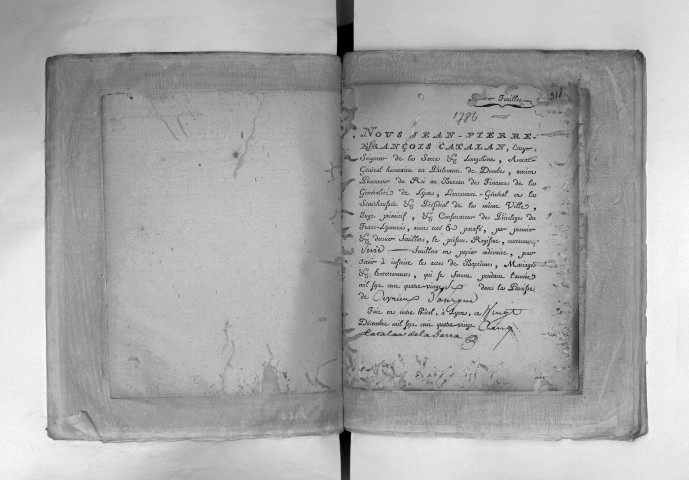 Feuillet
311
1786
NOUS JEAN-PIERRE-
FRANÇOIS CATALAN, Ecuyer,
Seigneur de la Sarra & Longchêne, Avocat
Général honoraire au Parlement de Dombes, ancien
Procureur du Roi au Bureau des Finances de la
Généralité de Lyon, Lieutenant-Général en la
Sénéchaussée & Présidial de la même Ville,
Juge primitif, & Conservateur des Privileges du
Franc-Lyonnois, avons coté & parafé, par premier
& dernier feuillets, le présent Registre, contenant
feuillets en papier ordinaire, pour
servir à inscrire les actes de Baptêmes, Mariages
& Enterrements, qui se feront pendant l'année
mil sept cent quatre-vingt six dans la Paroisse
de
Fait en notre Hôtel, à Lyon, ce Vingt
Décembre mil sept cent quatre-vingt Cinq
Catalan de la Sarra